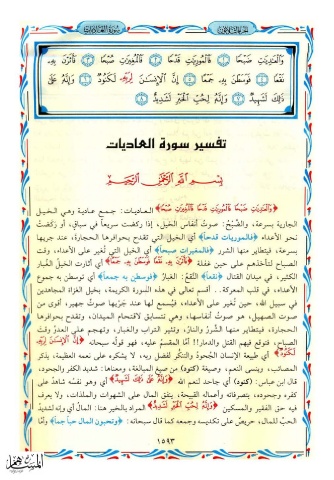 سورة العاديات
وَالْعَٰدِيَٰتِ ضَبْحًا ۝١ فَالْمُورِيَٰتِ قَدْحًا ۝٢ فَالْمُغِيرَٰتِ صُبْحًا ۝٣ فَأَثَرْنَ بِهِۦ
نَقْعًا ۝٤ فَوَسَطْنَ بِهِۦ جَمْعًا ۝٥ إِنَّ الْإِنسَٰنَ لِرَبِّهِۦ لَكَنُودٌ ۝٦ وَإِنَّهُۥ عَلَىٰ
ذَٰلِكَ لَشَهِيدٌ ۝٧ وَإِنَّهُۥ لِحُبِّ الْخَيْرِ لَشَدِيدٌ ۝٨
تفسير سورة العاديات
بِسْمِ اللَّهِ الرَّحْمَٰنِ الرَّحِيمِ
﴿وَالْعَٰدِيَٰتِ ضَبْحًا فَالْمُورِيَٰتِ قَدْحًا فَالْمُغِيرَٰتِ صُبْحًا﴾ العاديات: جمع عادية وهي الخيل
الجارية بسرعة، والضَّبْحُ: صوتُ أنفاس الخيل، إذا ركضت سريعاً في سباق، أو ركضت
نحو الأعداء ﴿فالموريات قدحاً﴾ أي الخيل التي تقدح بحوافرها الحجارة، عند جريها
بسرعة، فيتطاير منها الشرر ﴿فالمغيرات صبحاً﴾ أي الخيل التي تُغير على الأعداء، وقت
الصباح لتأخذهم على حين غفلة ﴿فَأَثَرْنَ بِهِۦ نَقْعًا فَوَسَطْنَ بِهِۦ جَمْعًا﴾ أي أثارت الخيلُ الغُبار
الكثير، في ميدان القتال ﴿نقعاً﴾ النَّقْعُ: الغبارُ ﴿فوسطن به جمعاً﴾ أي توسطن به جموع
الأعداء، في قلب المعركة.. أقسم تعالى في هذه السورة الكريمة، بخيل الغزاة المجاهدين
في سبيل الله، حين تُغير على الأعداء، فيُسمع لها عند جَرْيها صوتٌ جهير، أقوى من
صوت الصهيل، هو صوتُ أنفاسها، وهي تتسابق لاقتحام الميدان، وتقدح بحوافرها
الحجارة، فيتطاير منها الشَّررُ والنارُ، وتثير التراب والغبار، وتهجم على العدوِّ وقتَ
الصباح، فتوقع فيهم القتل والدمار!! أمَّا المقسمُ عليه، فهو قولُه سبحانه ﴿إِنَّ الْإِنسَٰنَ لِرَبِّهِۦ
لَكَنُودٌ﴾ أي طبيعة الإنسان الجُحودُ والتنكُّر لفضل ربه، لا يشكره على نعمه العظيمة، يذكر
المصائب، وينسى النعم، وصيغة (كنود) من صيغ المبالغة، ومعناها: شديد الكفر والجحود،
قال ابن عباس: (كنود) أي جاحد لنعم الله ﴿وَإِنَّهُۥ عَلَىٰ ذَٰلِكَ لَشَهِيدٌ﴾ أي وهو نفسُه شاهدٌ على
كفره وجحوده، بتصرفاته وأعماله القبيحة، ينفق المال على الشهوات والملذات، ولا يعرف
فيه حق الفقير والمسكين ﴿وَإِنَّهُۥ لِحُبِّ الْخَيْرِ لَشَدِيدٌ﴾ المراد بالخير هنا: المالُ أي وإنه لشديدُ
الحبِّ للمال، حريصٌ على تكديسه وجمعه كما قال سبحانه: ﴿وتحبون المال حباً جماً﴾ وأمَّا
١٥٩٣